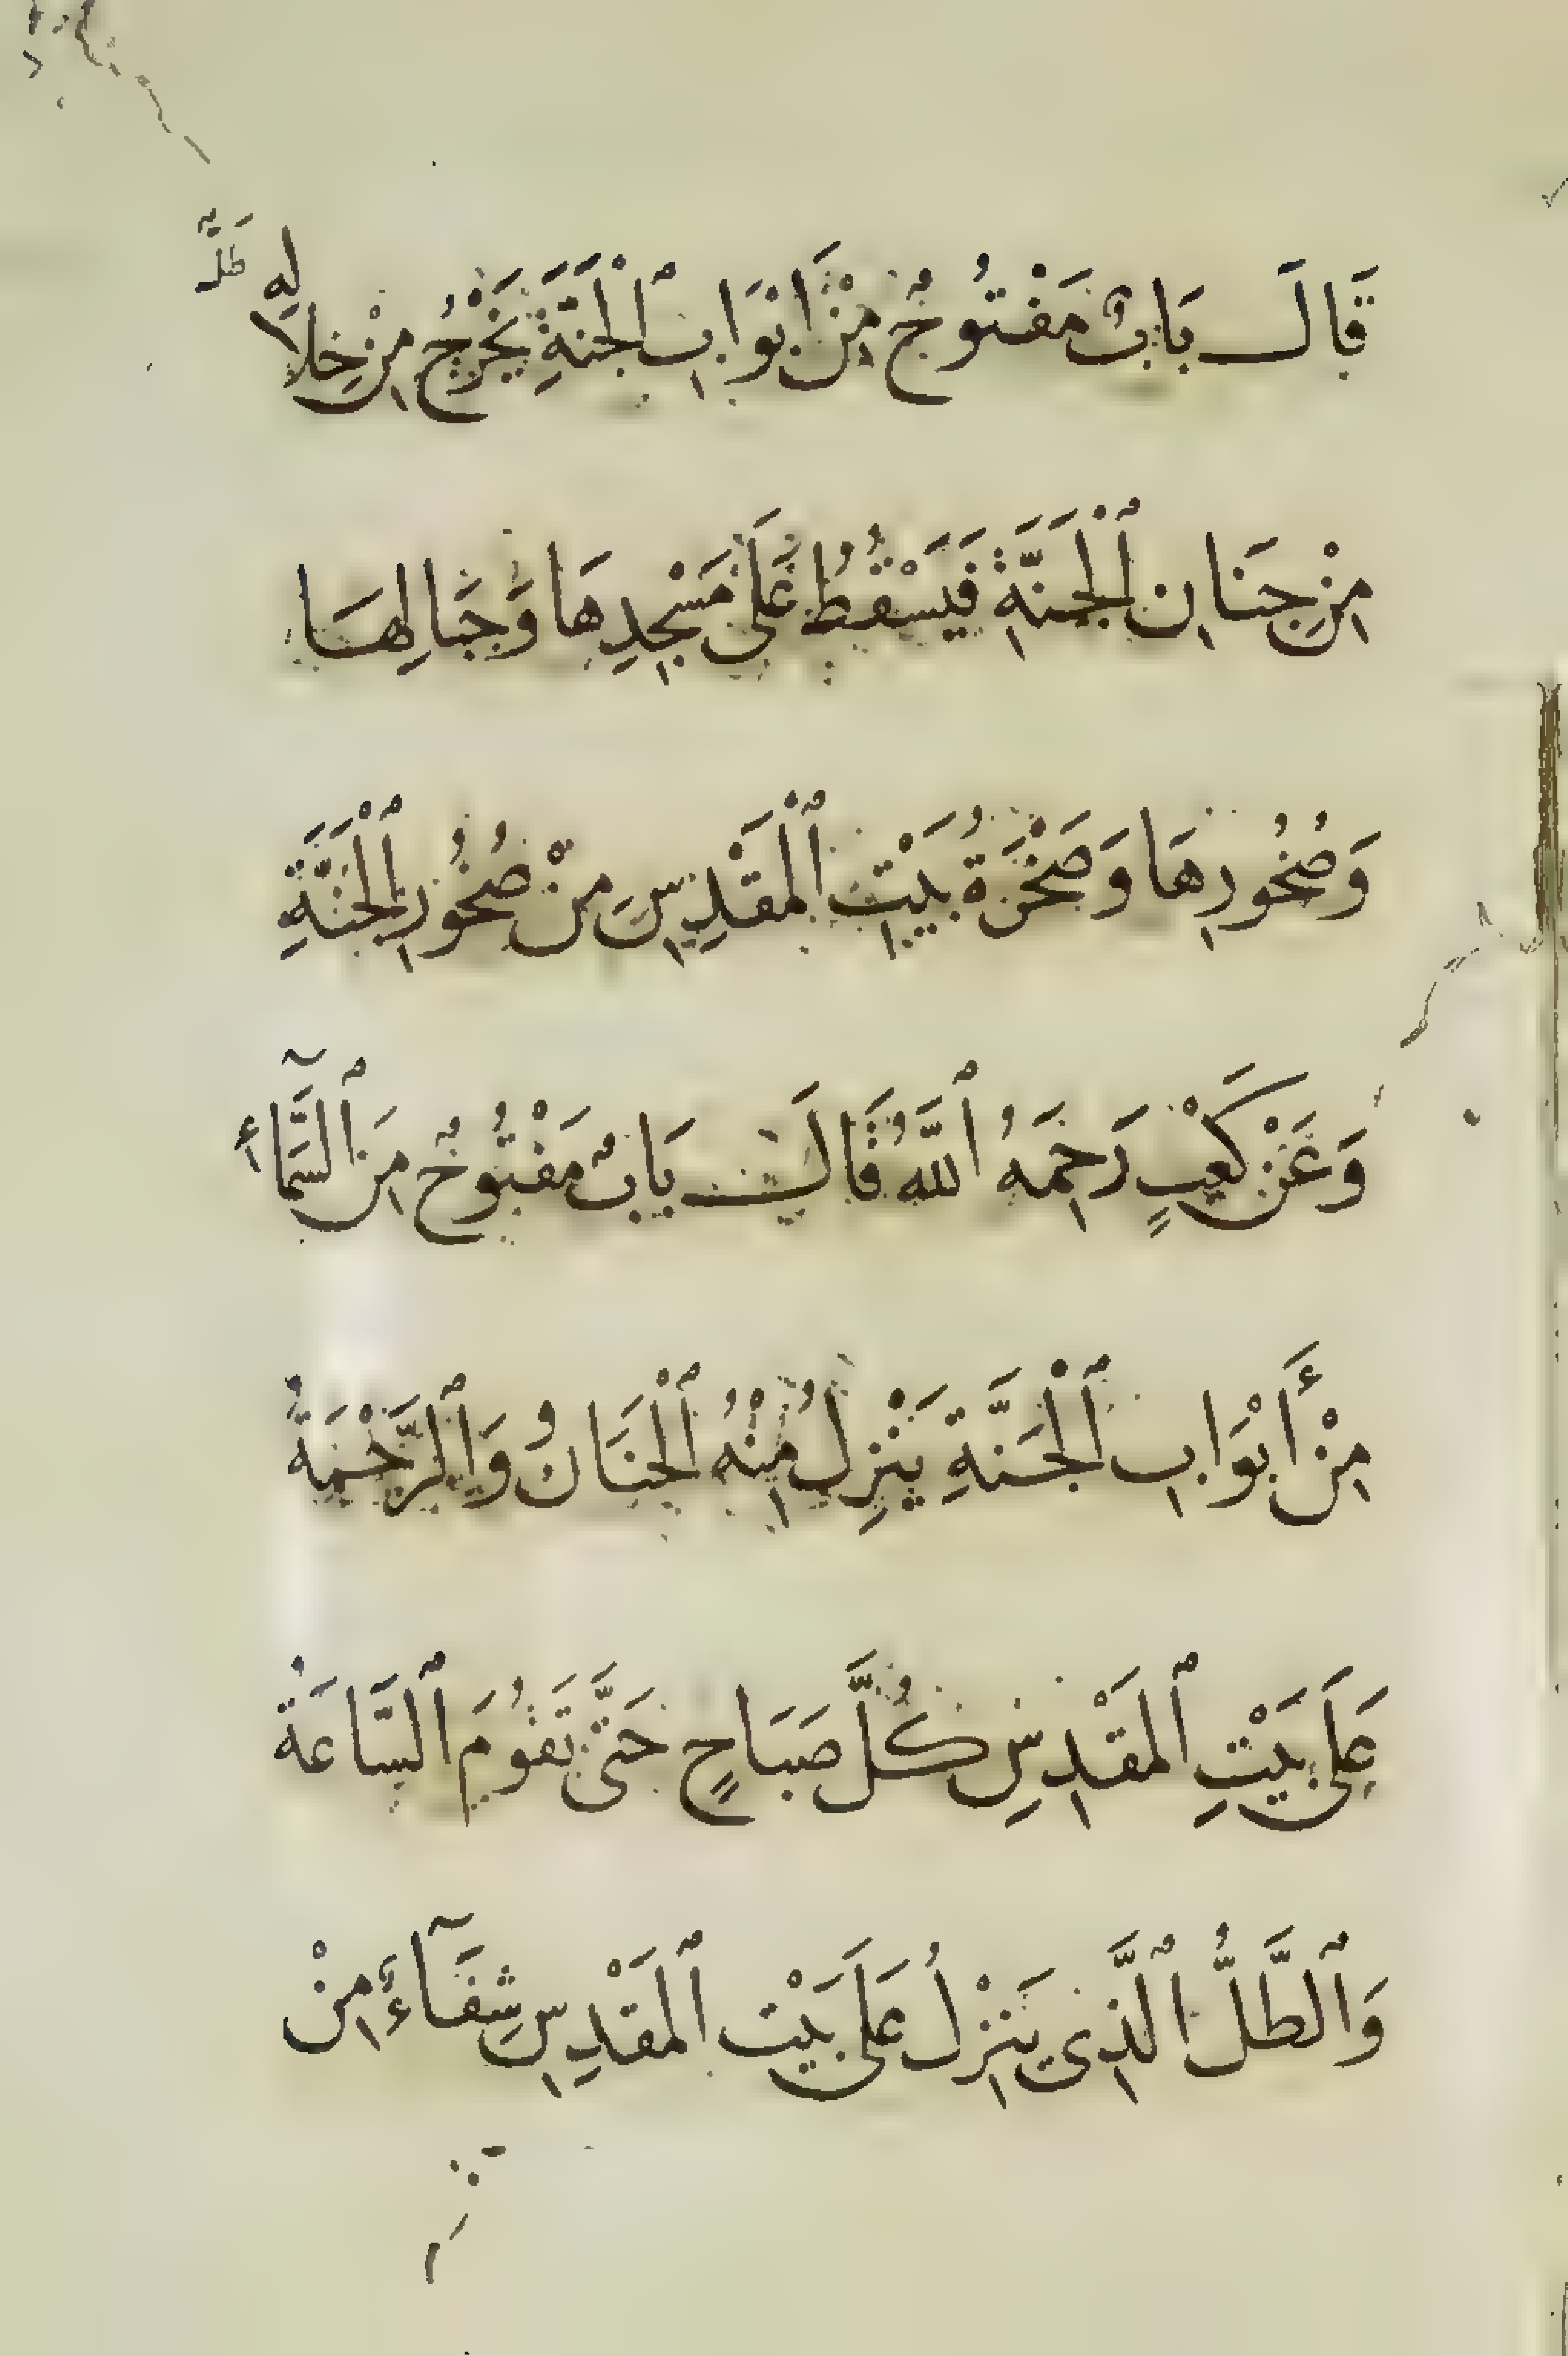 قَالَ بَابٌ مَفْتُوحٌ مِنْ اَبْوَابِ ٱلْجَنَّةِ يَخْرُجُ مِنْ خِلَالِهِ طَلٌّ
مِنْ جِنَانِ ٱلْجَنَّةِ فَيَسْقُطُ عَلَى مَسْجِدِهَا وَجِبَالِهَا
وَصُخُورِهَا وَصَخْرَةُ بَيْتِ ٱلْمَقْدِسِ مِنْ صُخُورِ ٱلْجَنَّةِ
وَعَنْ كَعْبٍ رَحِمَهُ ٱللَّهُ قَالَ بَابٌ مَفْتُوحٌ مِنَ ٱلسَّمَآءِ
مِنْ أَبْوَابِ ٱلْجَنَّةِ يَنْزِلُ مِنْهُ ٱلْحَنَانُ وَٱلرَّحْمَةُ
عَلَى بَيْتِ ٱلْمَقْدِسِ كُلَّ صَبَاحٍ حَتَّى تَقُومَ ٱلسَّاعَةُ
وَٱلطَّلُّ ٱلَّذِى يَنْزِلُ عَلَى بَيْتِ ٱلْمَقْدِسِ شِفَآءٌ مِنْ